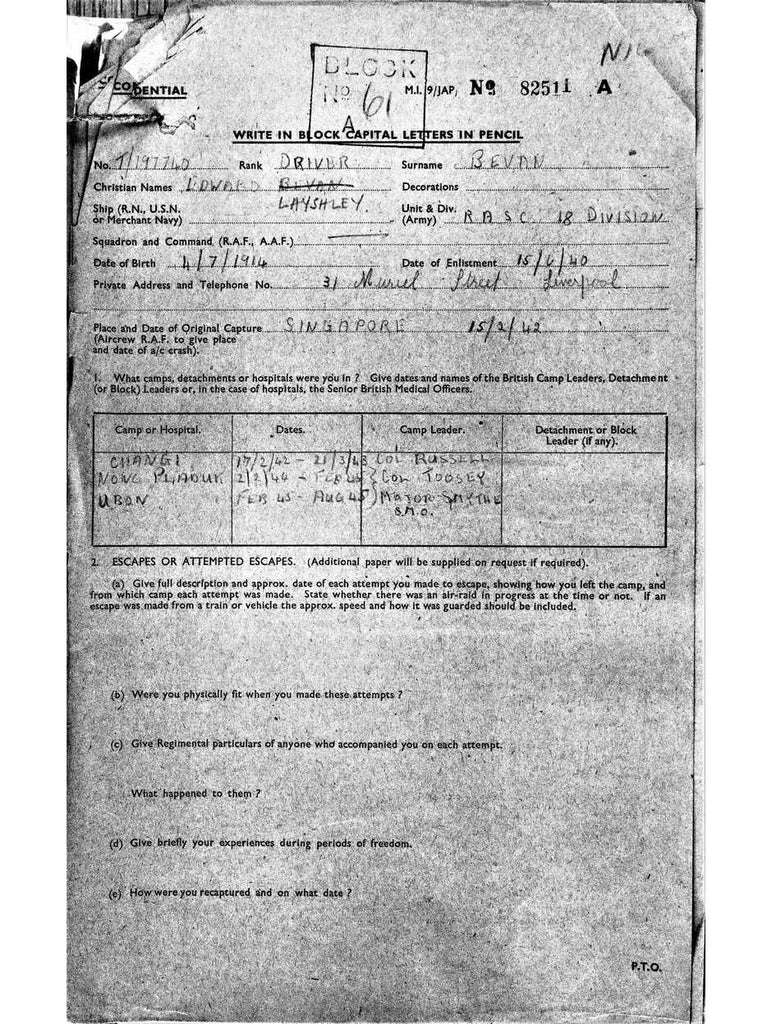 CONFIDENTIAL
BLOCK
No 61
A
M.I. 9/JAP, No 82511 A
WRITE IN BLOCK CAPITAL LETTERS IN PENCIL
No. T/197740 Rank DRIVER Surname BEVAN
Christian Names EDWARD BEVAN Decorations
LAYSHLEY.
Ship (R.N., U.S.N. or Merchant Navy) Unit & Div. (Army) RASC 18 DIVISION
Squadron and Command (R.A.F., A.A.F.)
Date of Birth 4/7/1914 Date of Enlistment 15/6/40
Private Address and Telephone No. 31 Muriel Street Liverpool
Place and Date of Original Capture SINGAPORE 15/2/42
(Aircrew R.A.F. to give place
and date of a/c crash).
1. What camps, detachments or hospitals were you in ? Give dates and names of the British Camp Leaders, Detachment
(or Block) Leaders or, in the case of hospitals, the Senior British Medical Officers.
Camp or Hospital. Dates. Camp Leader. Detachment or Block
Leader (if any).
CHANGI 17/2/42 - 21/3/43 COL RUSSELL
NONG PLADUK 2/2/44 - FEB 45 COL TOOSEY
UBON FEB 45 - AUG 45 MAJOR SMYTHE
S.M.O.
2. ESCAPES OR ATTEMPTED ESCAPES. (Additional paper will be supplied on request if required).
(a) Give full description and approx. date of each attempt you made to escape, showing how you left the camp, and
from which camp each attempt was made. State whether there was an air-raid in progress at the time or not. If an
escape was made from a train or vehicle the approx. speed and how it was guarded should be included.
(b) Were you physically fit when you made these attempts ?
(c) Give Regimental particulars of anyone who accompanied you on each attempt.
What happened to them ?
(d) Give briefly your experiences during periods of freedom.
(e) How were you recaptured and on what date ?
P.T.O.